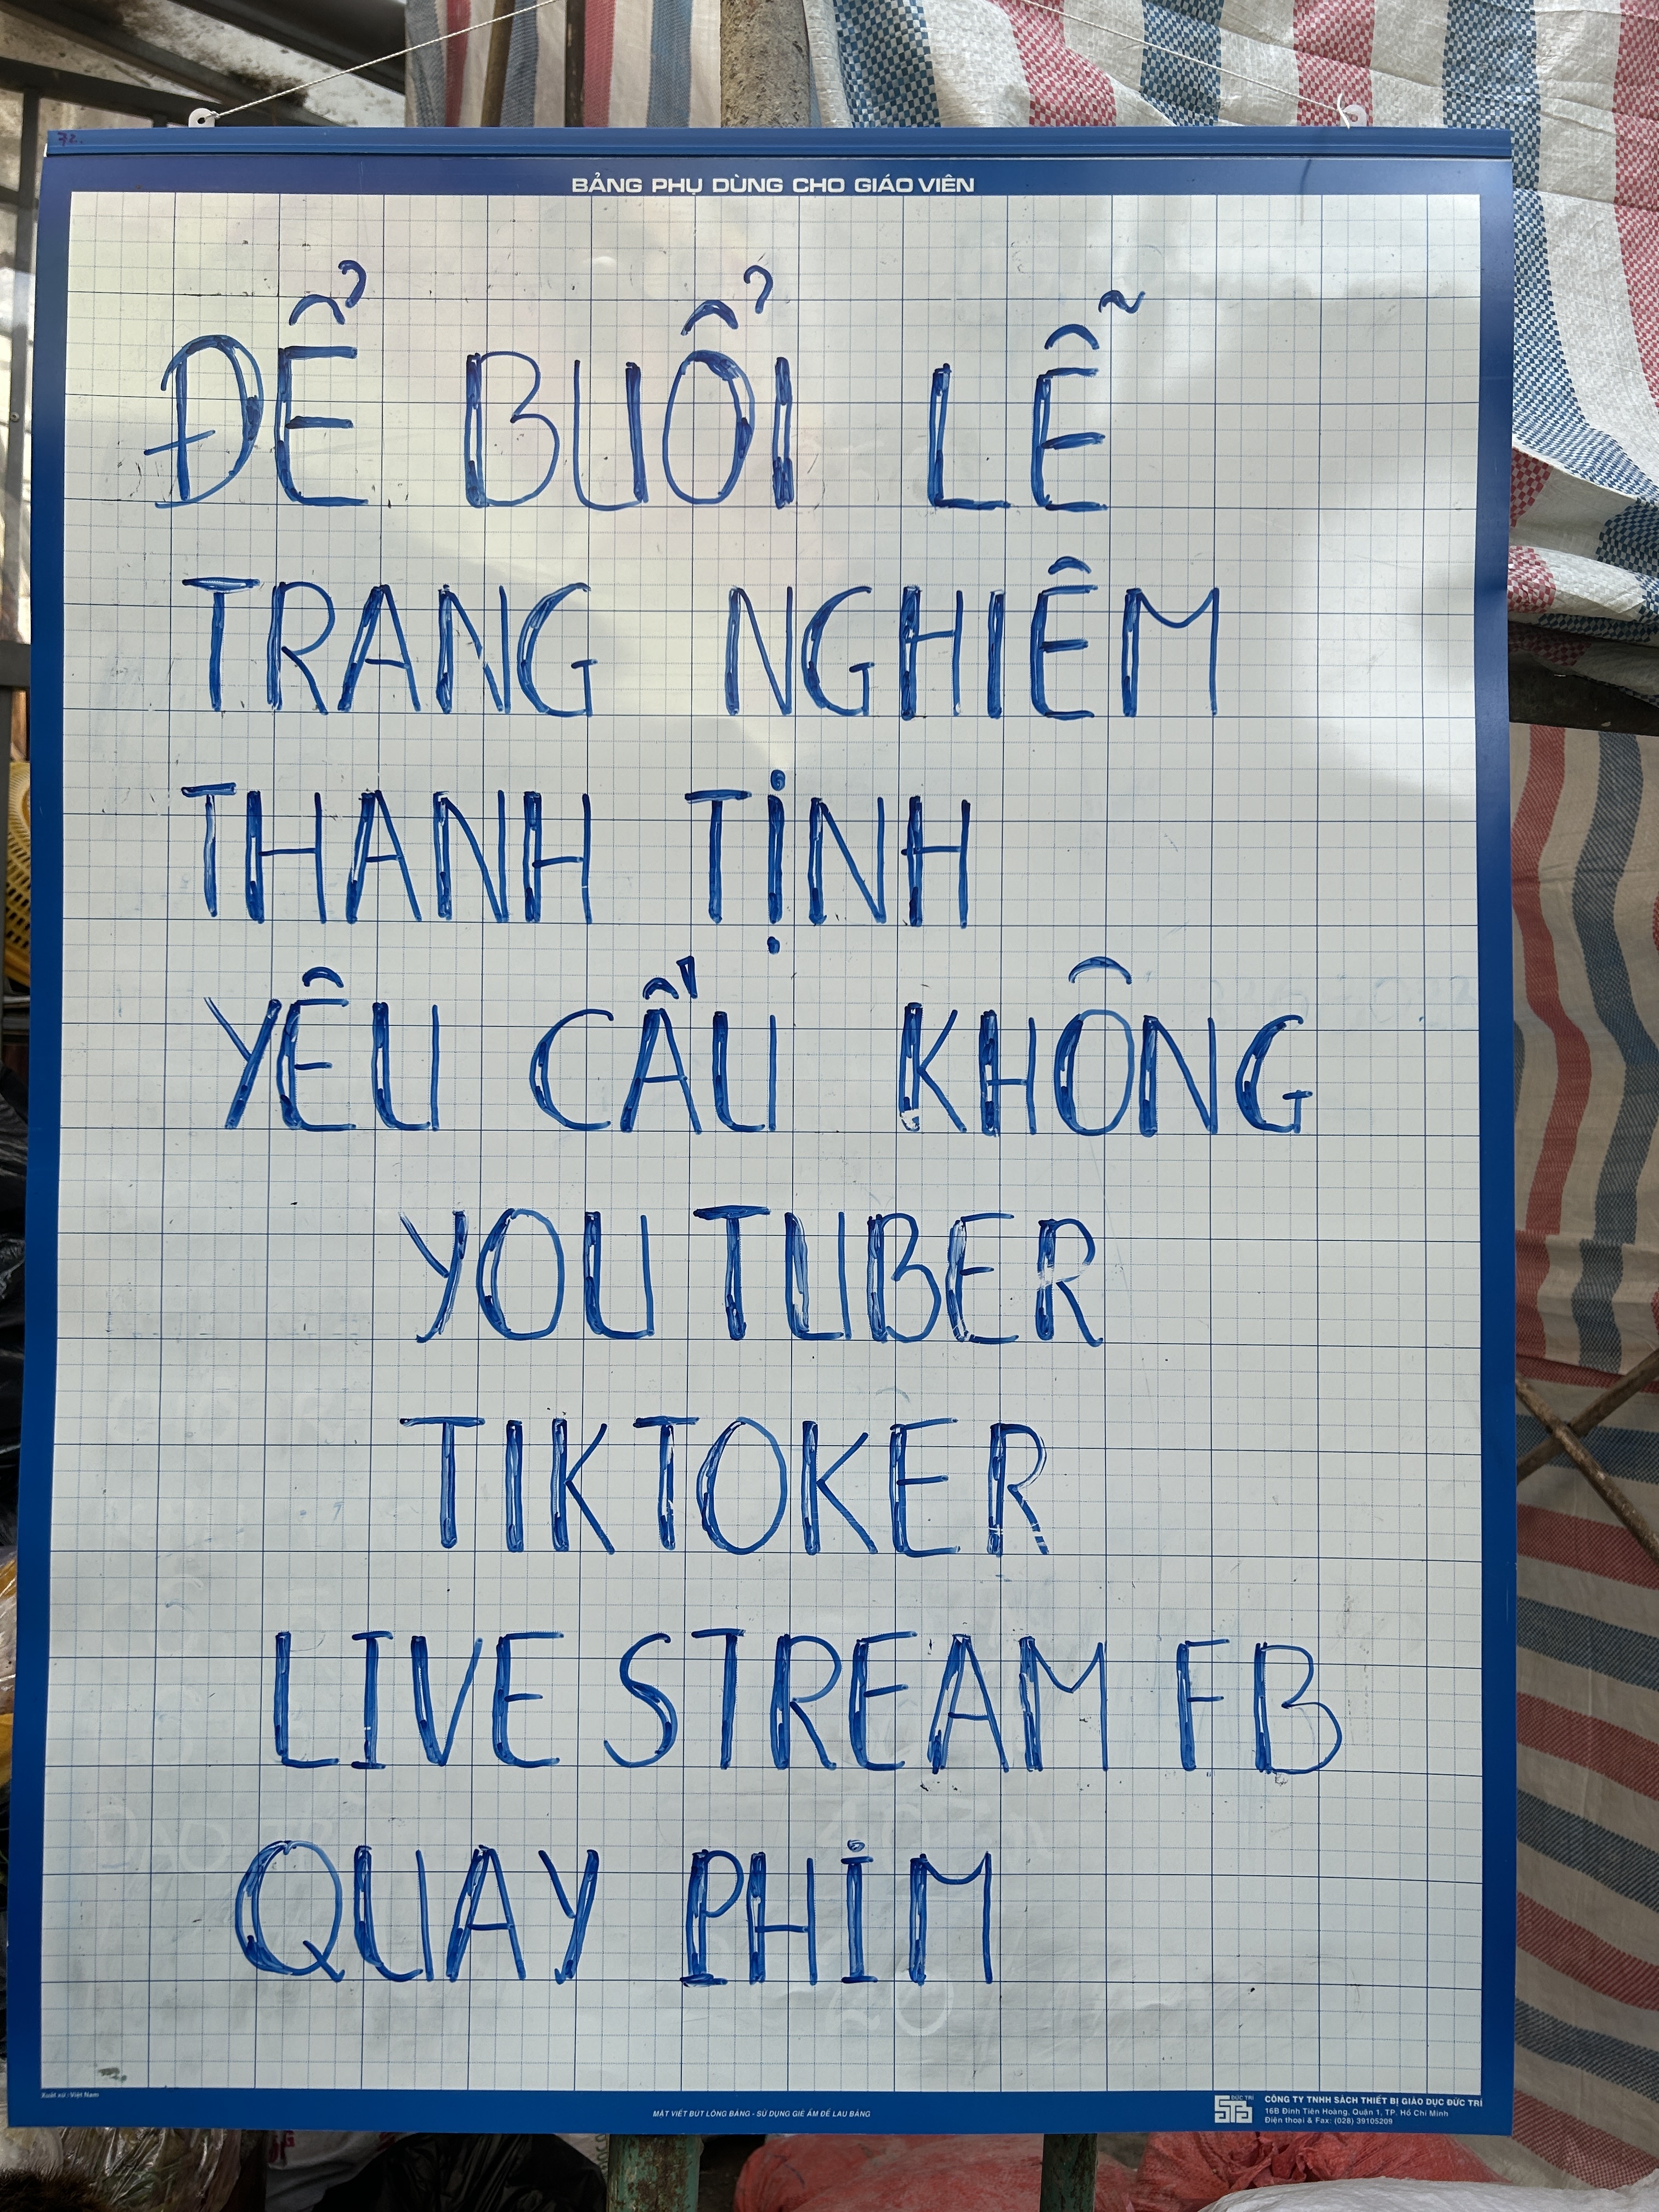 72.
BẢNG PHỤ DÙNG CHO GIÁO VIÊN
ĐỂ BUỔI LỄ
TRANG NGHIÊM
THANH TỊNH
YÊU CẦU KHÔNG
YOUTUBER
TIKTOKER
LIVE STREAM FB
QUAY PHIM
Xuất xứ : Việt Nam
MẶT VIẾT BÚT LÔNG BẢNG - SỬ DỤNG GIẺ ẨM ĐỂ LAU BẢNG
ĐỨC TRÍ
CÔNG TY TNHH SÁCH THIẾT BỊ GIÁO DỤC ĐỨC TRÍ
16B Đinh Tiên Hoàng, Quận 1, TP. Hồ Chí Minh
Điện thoại & Fax: (028) 39105209